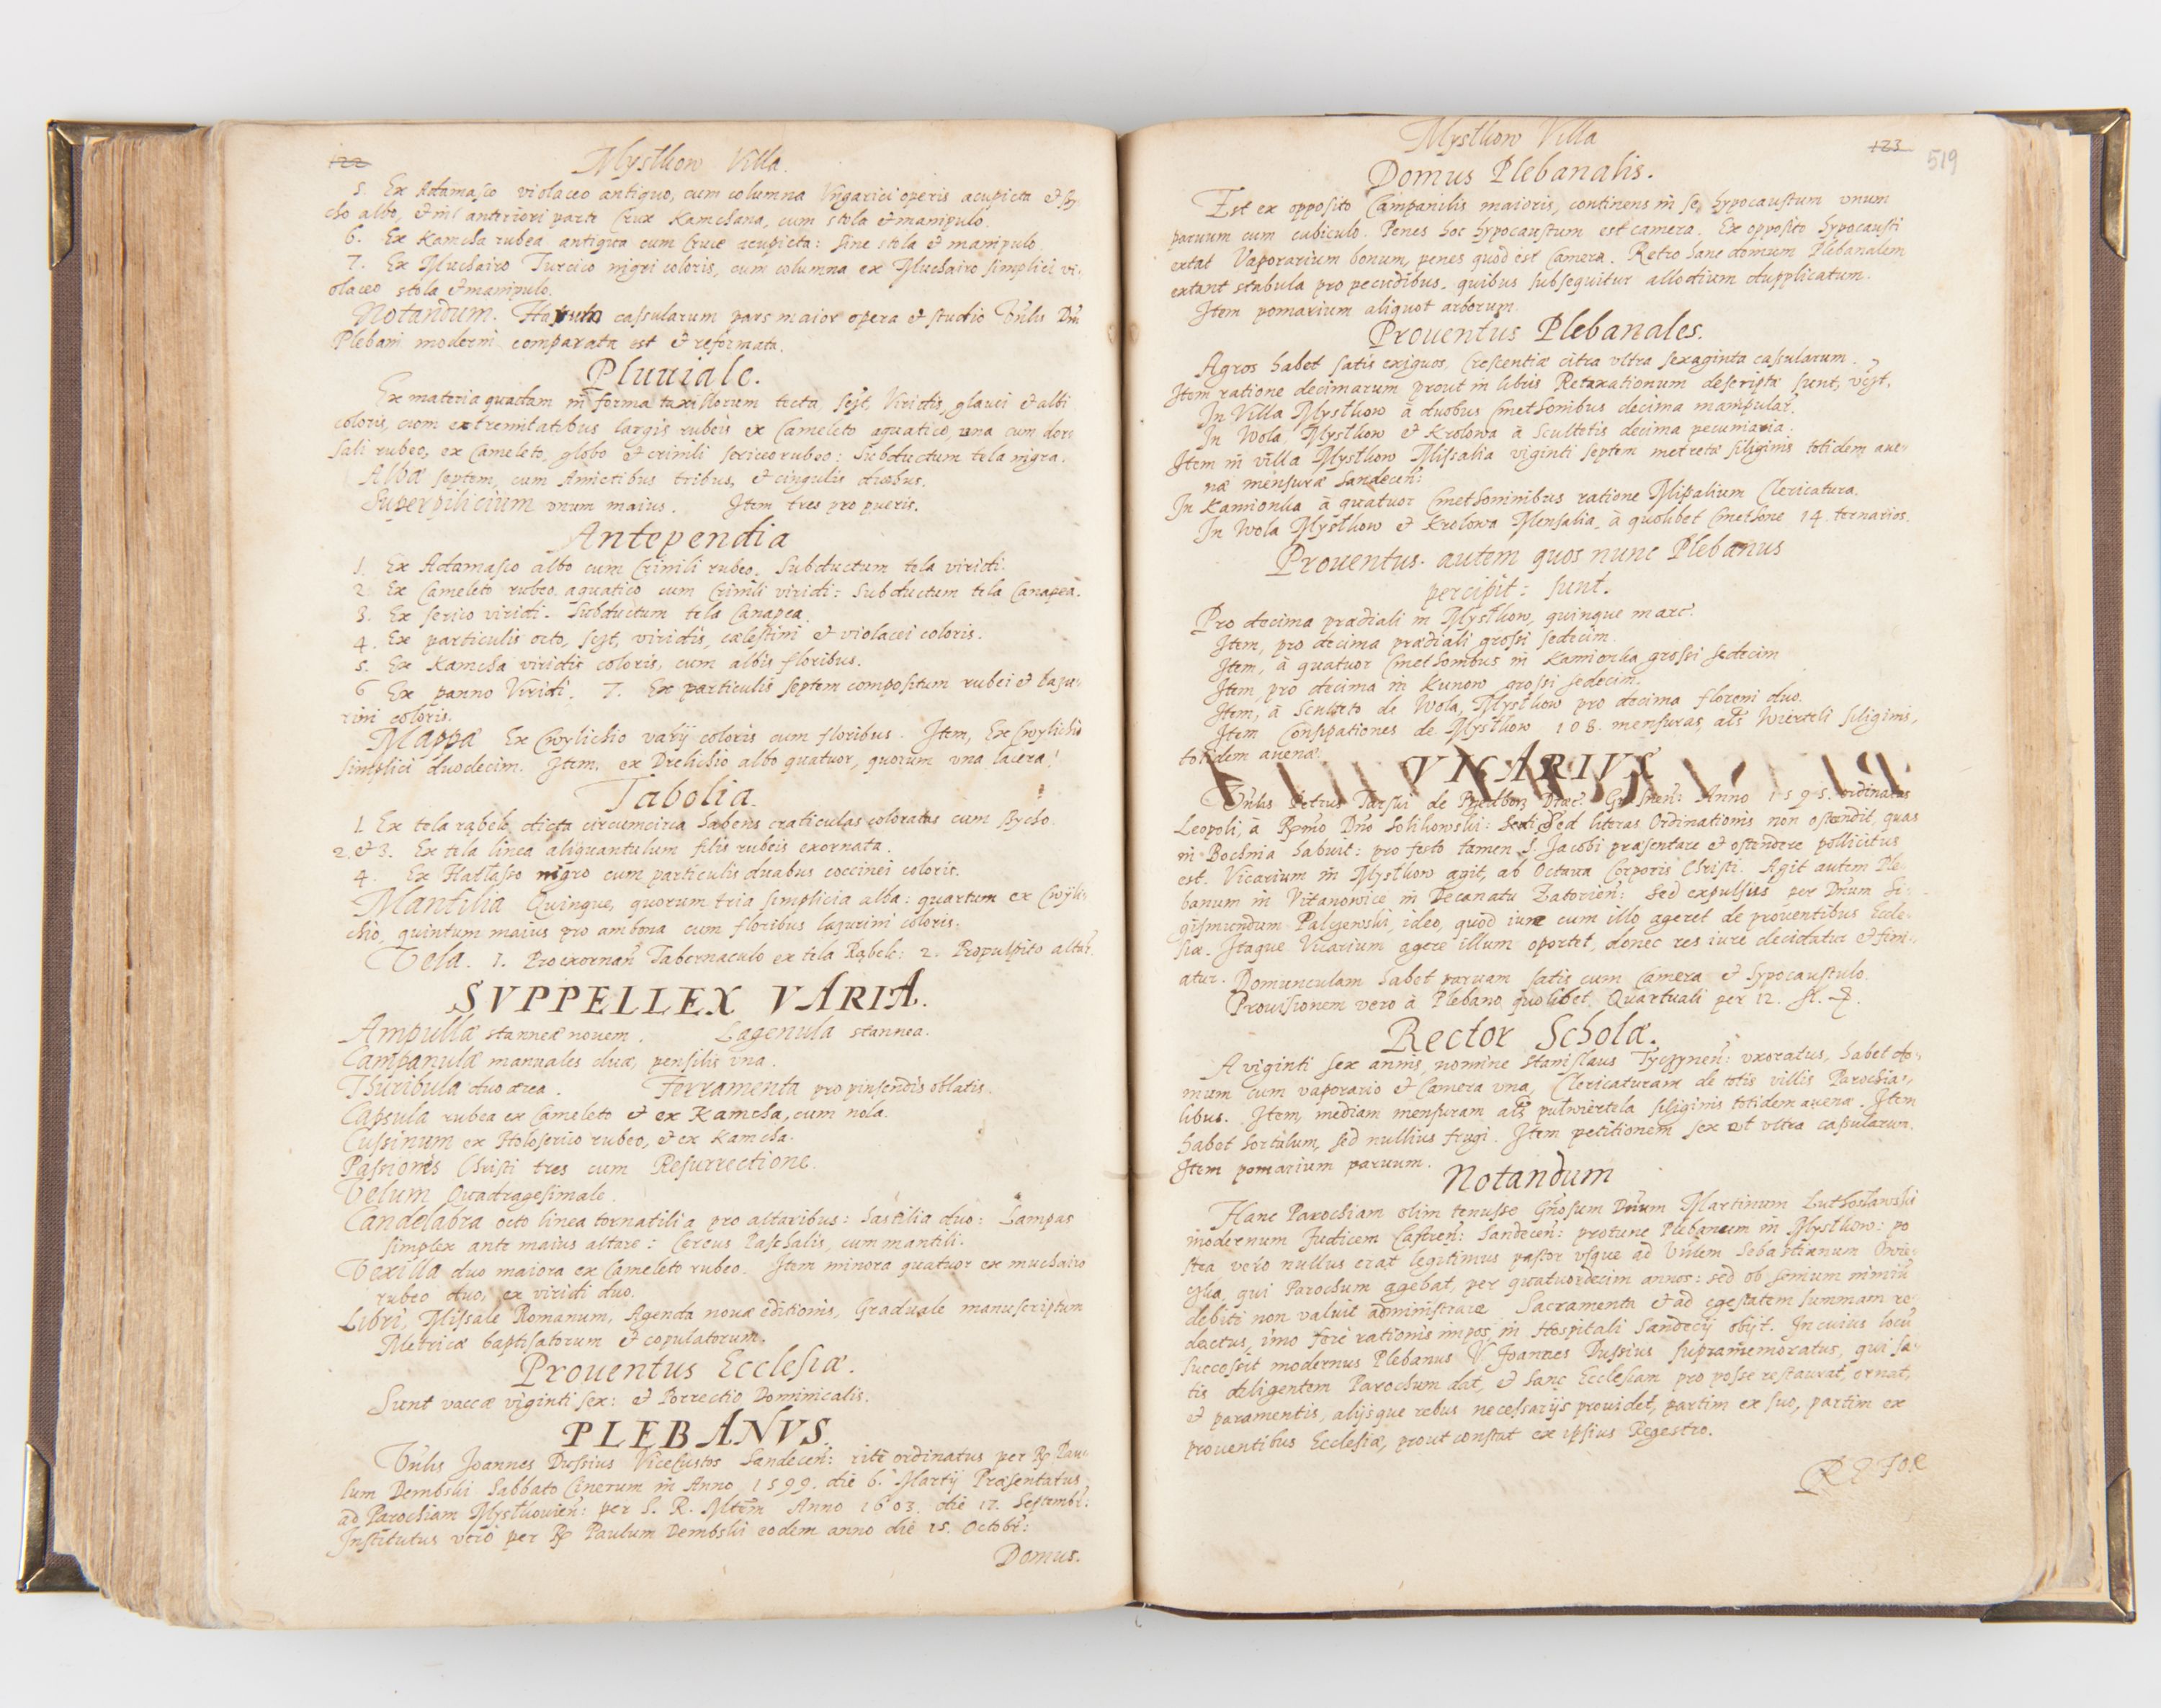 122
Mystkow Villa.
5. Ex Adamasco violaceo antiquo, cum columna Vngarici operis acupicta et By-
cho albo, et in anteriori parte Crux Kamchana, cum stola et manipulo.
6. Ex Kamcha rubea antiqua cum Cruce acupicta: sine stola et manipulo.
7. Ex Muchairo Turcico nigri coloris, cum columna ex Muchairo simplici vi-
olaceo stola et manipulo.
Notandum. Harum casularum pars maior opera et studio Vnlis Dni
Plebani moderni comparata est et reformata.
Pluuiale.
Ex materia quadam in forma taxillorum tecta, scilt, Viridis, glauci et albi
coloris, cum extremitatibus largis rubeis ex Cameleto aquatico, vna cum dor-
sali rubeo, ex Cameleto, globo et crinili sericeo rubeo: Subductum tela nigra.
Albæ septem, cum Amictibus tribus, et cingulis duobus.
Superpilicium vnum maius. Item tres pro pueris.
Antependia
1. Ex Adamasco albo cum Crinili rubeo. Subductum tela viridi.
2. Ex Cameleto rubeo aquatico cum Crinili viridi: Subductum tela Canapea.
3. Ex serico viridi. Subductum tela Canapea.
4. Ex particulis octo, scilt, viridis, cælestini et violacei coloris.
5. Ex Kamcha viridis coloris, cum albis floribus.
6 Ex panno Viridi. 7. Ex particulis septem compositum rubei et lazu-
rini coloris.
Mappæ Ex Cwylichio varij coloris cum floribus. Item, Ex Cwylichio
simplici duodecim. Item, ex Drelichio albo quatuor, quorum vna lacera.
Tabolia.
1. Ex tela rąbek dicta circumcirca habens craticulas coloratas cum Bycho.
2. et 3. Ex tela linea aliquantulum filis rubeis exornata.
4. Ex Hatlasso nigro cum particulis duabus coccinei coloris.
Mantilia Quinque, quorum tria simplicia alba: quartum ex Cwyli-
chio, quintum maius pro ambona cum floribus lazurini coloris.
Vela. 1. Pro exornan Tabernaculo ex tela Rąbek: 2. Pro pulpito altar.
SVPPELLEX VARIA.
Ampullæ stanneæ nouem. Lagenula stannea.
Campanulæ manuales duæ, pensilis vna.
Thuribula duo ærea. Ferramenta pro pinsendis oblatis.
Capsula rubea ex Cameleto et ex Kamcha, cum nola.
Cussinum ex Holoserico rubeo, et ex Kamcha.
Passiones Christi tres cum Resurrectione.
Velum Quadragesimale.
Candelabra octo linea tornatilia pro altaribus: hastilia duo: Lampas
simplex ante maius altare: Cereus Paschalis, cum mantili.
Vexilla duo maiora ex Cameleto rubeo. Item minora quatuor ex muchairo
rubeo duo, ex viridi duo.
Libri, Missale Romanum, Agenda nouæ editionis, Graduale manuscriptum
Metricæ baptisatorum et copulatorum.
Prouentus Ecclesiæ.
Sunt vaccæ viginti sex: et Porrectio Dominicalis.
PLEBANVS.
Vnlis Joannes Dussius Vicecustos Sandecen: rite ordinatus per R Pau-
lum Dembski Sabbato Cinerum in Anno 1599. die 6. Martij Præsentatus
ad Parochiam Mystkouien: per S. R. Mtem Anno 1603. die 17. Septembr:
Institutus vero per R Paulum Dembski eodem anno die 15. Octobr:
Domus.
Mystkow Villa
123
519
Domus Plebanalis.
Est ex opposito Campanilis maioris, continens in se hypocaustum vnum
paruum cum cubiculo. Penes hoc hypocaustum est camera. Ex opposito hypocausti
extat Vaporarium bonum, penes quod est Camera. Retro hanc domum Plebanalem
extant stabula pro pecudibus, quibus subsequitur allodium dupplicatum.
Item pomarium aliquot arborum.
Prouentus Plebanales.
Agros habet satis exiguos, Crescentiæ citra vltra sexaginta cassularum.
Item ratione decimarum prout in libris Retaxationum descripta sunt, vcz.
In Villa Mystkow à duobus Cmethonibus decima manipular.
In Wola Mystkow et Krolowa à Scultetis decima pecuniaria.
Item in villa Mystkow Missalia viginti septem metretæ siliginis totidem aue-
næ mensuræ Sandecen:
In Kamionka à quatuor Cmethoninibus ratione Missalium Clericatura.
In Wola Mystkow et Krolowa Mensalia, à quolibet Cmethone 14 ternarios.
Prouentus autem quos nunc Plebanus
percipit: sunt.
Pro decima prædiali in Mystkow, quinque marc.
Item, pro decima prædiali grossi sedecim.
Item, à quatuor Cmethonibus in Kamionka grossi sedecim
Item pro decima in Kunow grossi sedecim.
Item, à Sculteto de Wola, Mystkow pro decima floreni duo.
Item Consipationes de Mystkow 108. mensuras, als Wierteli siliginis,
totidem auenæ.
Vnlis Petrus Tarski de Diœc: Gnesnen: Anno 1595. ordinatus
Leopoli, à Rmo Dno Solikowski: Sed literas Ordinationis non ostendit, quas
in Bochnia habuit: pro festo tamen S. Jacobi præsentare et ostendere pollicitus
est. Vicarium in Mystkow agit, ab Octaua Corporis Christi. Agit autem Ple-
banum in Vitanowice in Decanatu Zatorien: Sed expulsus per Dnum Si-
gismundum Palczowski, ideo, quod iure cum illo ageret de prouentibus Eccle-
siæ. Itaque Vicarium agere illum oportet, donec res iure decidatur et fini-
atur. Domunculam habet paruam satis cum Camera et hypocaustulo.
Prouisionem vero à Plebano quolibet Quartuali per 12. fl.
Rector Scholæ.
A viginti sex annis, nomine Stanislaus Tyczynen: vxoratus, habet do-
mum cum vaporario et Camera vna, Clericaturam de totis villis Parochia-
libus. Item, mediam mensuram als pułwiertela siliginis totidem auenæ. Item
habet hortulum, sed nullius frugi. Item petitionem sex et vltra cassularum.
Item pomarium paruum.
Notandum
Hanc Parochiam olim tenuisse Gnosum Dnum Martinum
modernum Judicem Castren: Sandecen: protunc Plebanum in Mystkow: po
stea vero nullus erat legitimus pastor vsque ad Vnlem Sebastianum
qui Parochum agebat, per quatuordecim annos: sed ob senium nimiu
debite non valuit administrare Sacramenta et ad egestatem summam re-
dactus, imo fere rationis impos, in Hospitali Sandecij obijt. In cuius locu
successit modernus Plebanus V. Joannes Dussius supramemoratus, qui sa-
tis diligentem Parochum dat, et hanc Ecclesiam pro posse restaurat, ornat,
et paramentis, alijsque rebus necessarijs prouidet, partim ex suo, partim ex
prouentibus Ecclesiæ, prout constat ex ipsius Regestro.